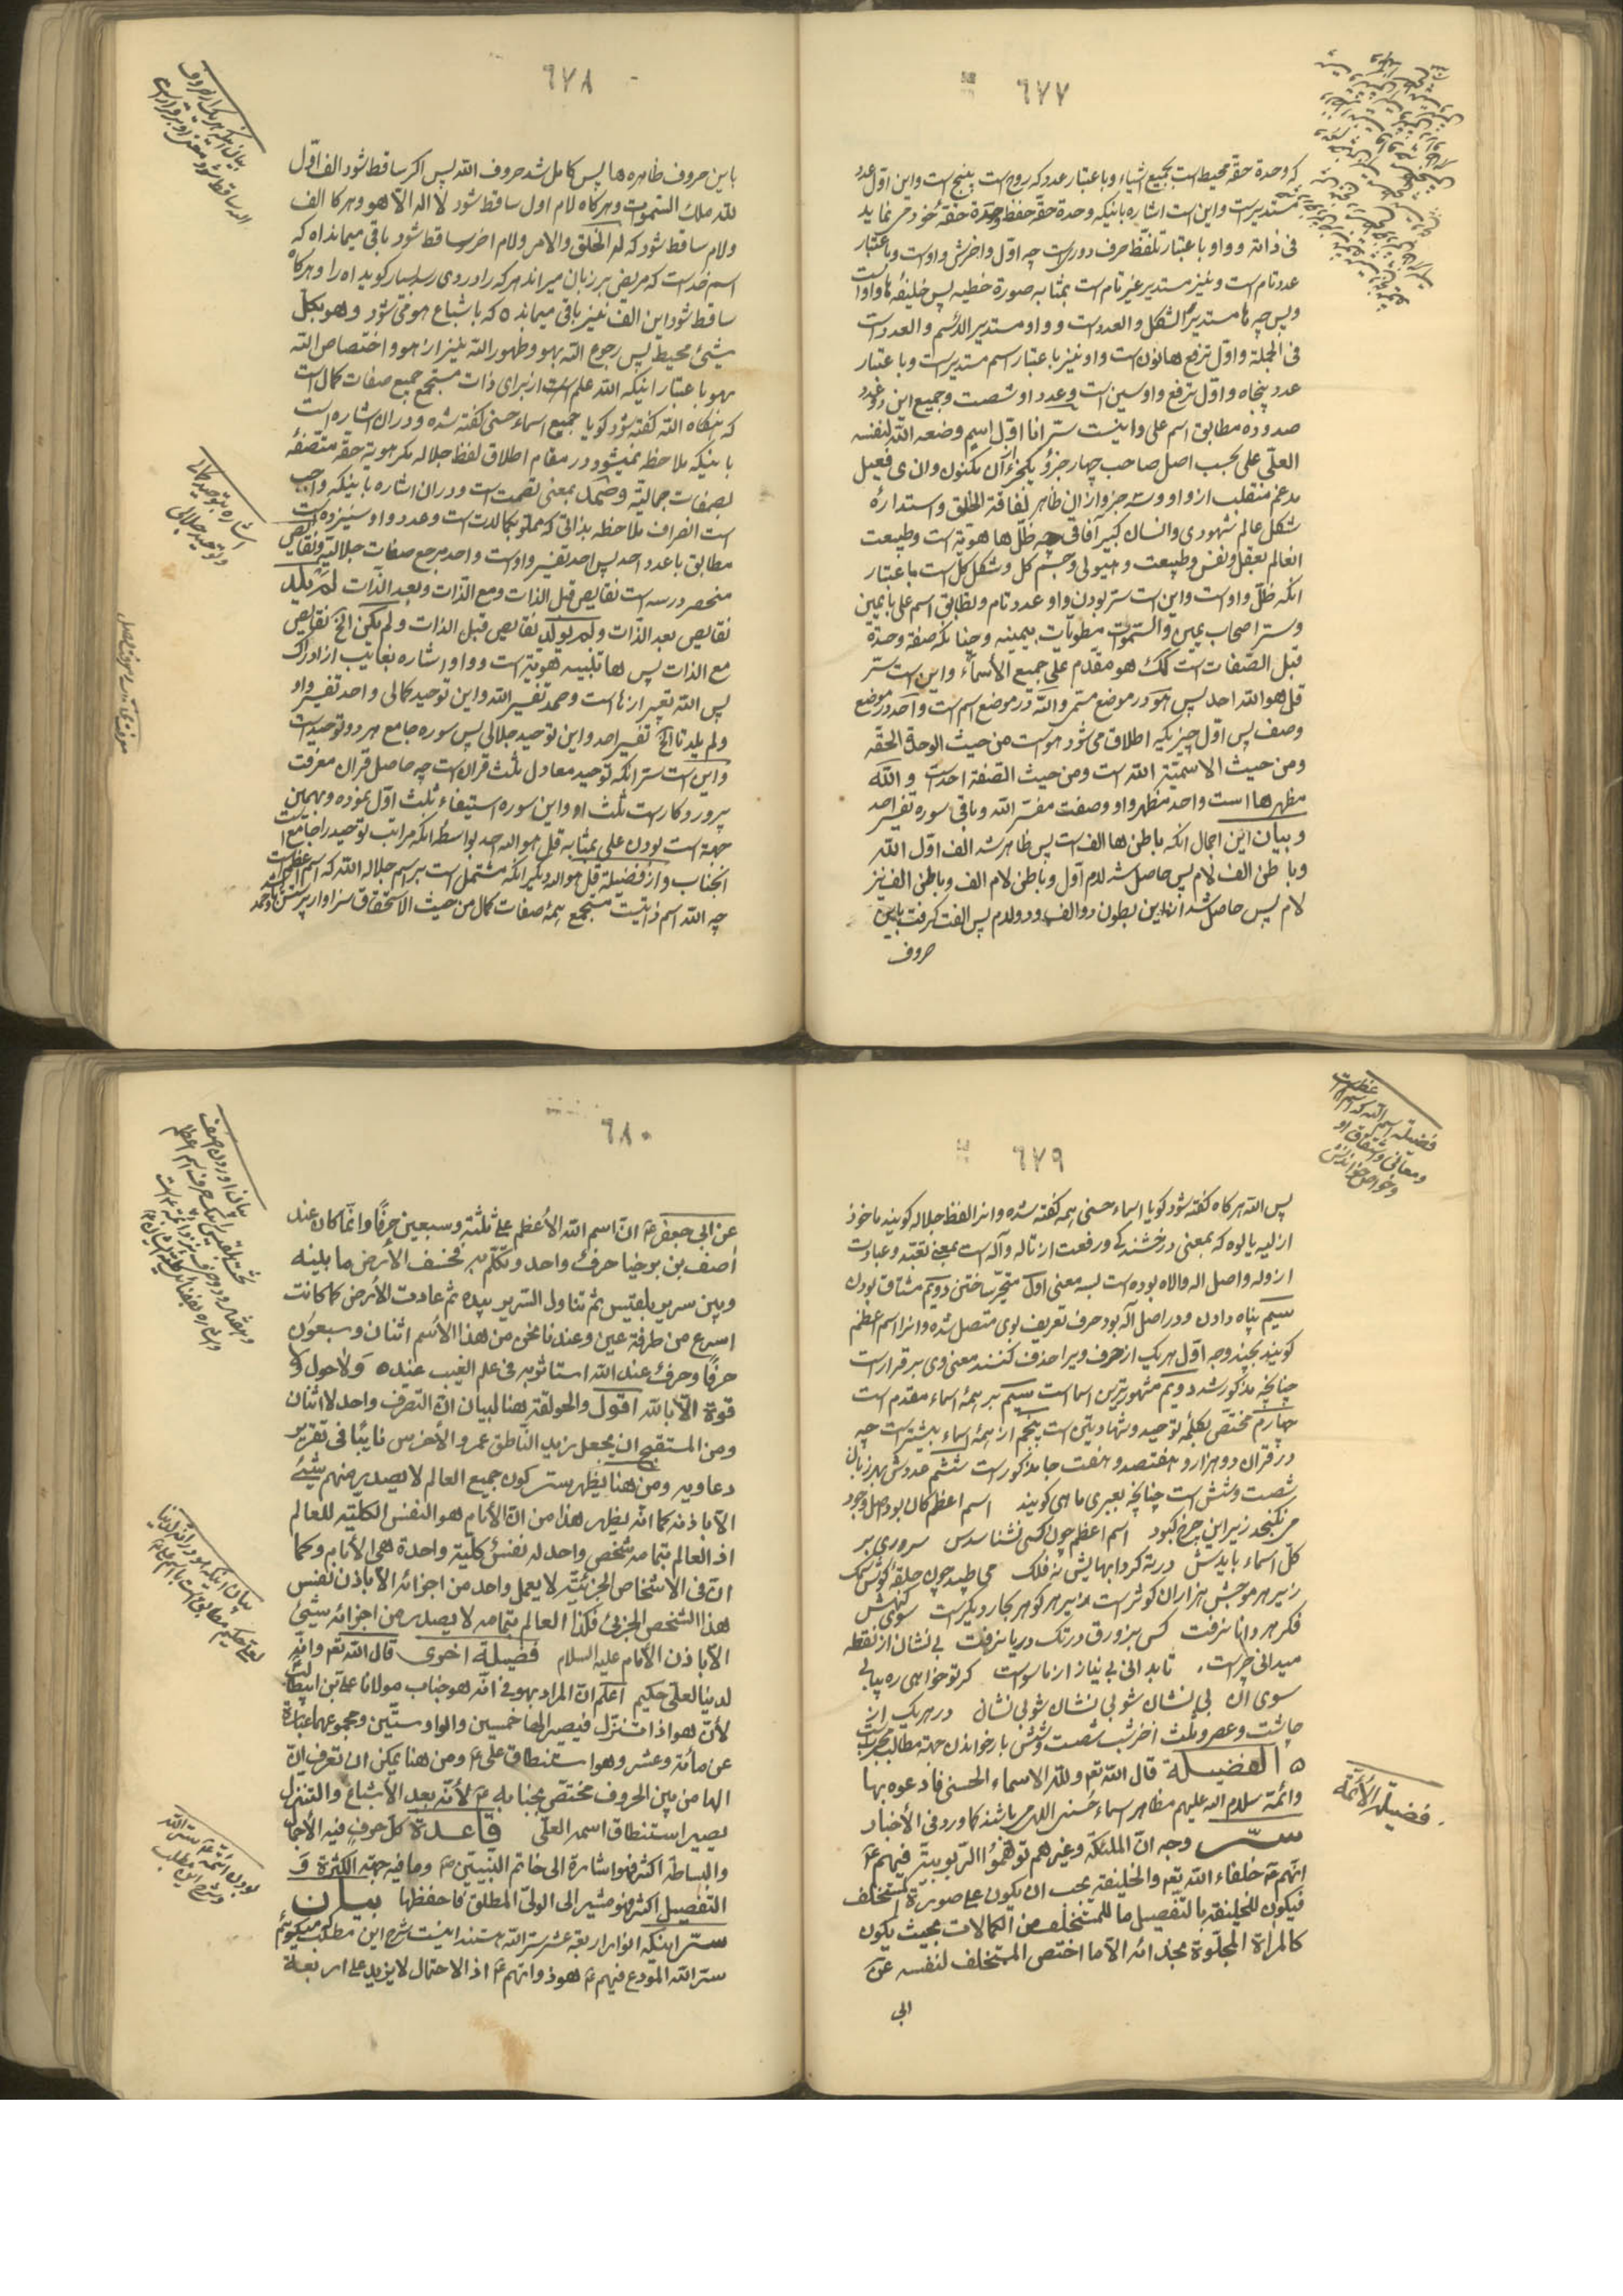 ٦٧٧
که وحدة حقّه محیط است بجمیع اشیاء و باعتبار عدد که روح است پنج است و این اوّل عدد
مستدیر است و این است اشاره باینکه وحدة حقّه حفظ وحدة حقّه خود می نماید
فی ذاته و واو باعتبار تلفّظ حرف دوری است چه اوّل و اخرش واو است و باعتبار
عدد تام است و نیز مستدیر غیر تام است بمثابه صورة خطیه پس خلیفه ها واو است
و پس چه ها مستدیر الشکل و العدد است و واو مستدیر الاسم و العدد است
فی الجملة و اوّل ترفع ها نون است و واو نیز باعتبار اسم مستدیر است و باعتبار
عدد پنجاه و اوّل ترفع واو سین است و عدد او شصت و جمیع این دو عدد
صد و ده مطابق اسم علی و اینست سرّ انا اوّل اسم وضعه اللّه لنفسه
العلّی علی بحسب اصل صاحب چهار جزؤ یکجزء آن مکنون و ان ی فعیل
مدغم منقلب از واو و سه جزء از ان ظاهر لفاقة الخلق و استدارۀ
شکل عالم شهودی و انسان کبیر آفاقی چه ظلّ ها هویّة است و طبیعت
انعالم بعقل و نفس و طبیعت و هیولی و جسم کل و شکل کل است باعتبار
انکه ظلّ واو است و این است سرّ بودن واو عدد تام و تطابق اسم علی با یمین
و سرّ اصحاب یمین و السّموات مطویّات بیمینه و چنانکه صفة وحدة
قبل الصّفات است کذلک هو مقدّم علی جمیع الأسمآء و این است سرّ
قل هو اللّه احد پس هو در موضع مستمر و اللّه در موضع اسم است و احد در موضع
وصف پس اوّل چیزیکه اطلاق می شود هو است من حیث الوحدة الحقّه
و من حیث الاسمیّة اللّه است و من حیث الصّفة احد است و اللّه
مظهر ها است و احد مظهر واو و صفت مفسّر اللّه و باقی سوره تفسیر احد
و بیان این اجمال انکه باطن ها الف است پس ظاهر شد الف اوّل اللّه
و باطن الف لام پس حاصل شد لام اول و باطن لام الف و باطن الف نیز
لام پس حاصل شد از این بطون دو الف و دو لام پس الفت گرفت باین
حروف
٦٧٨
باین حروف ظاهره ها پس کامل شد حروف اللّه پس اکر ساقط شود الف اوّل
للّه ملک السّموات و هرکاه لام اول ساقط شود لا اله الاّ هو و هرکا الف
و لام ساقط شود که له الخلق و الامر و لام اخر ساقط شود باقی میماند اه که
اسم خداست که مریض بر زبان میراند هر که را دردی رسد بسیار کوید اه را و هرکاه
ساقط شود این الف نیز باقی میماند ه که باشباع هو فی شود و هو بکل
شیئ محیط پس رجوع اللّه بهو و ظهور اللّه نیز از هو و اختصاص اللّه
بهو باعتبار اینکه اللّه علم است از برای ذات مستجمع جمیع صفات کمال است
که هنکاه اللّه کفته شود کویا جمیع اسماء حسنی کفته شده و در ان اشاره است
باینکه ملاحظه نمیشود در مقام اطلاق لفظ جلاله مکر هویة حقّه متّصفۀ
بصفات جمالیّه و صمد بمعنی تصمت است و در ان اشاره باینکه واجب
است انصراف ملاحظه بذاتی که مملو بکمالات است و عدد واو سیزده است
مطابق با عدد احد پس احد تفسیر واو است و احد مرجع صفات جلالیّه و نقایص
منحصر در سه است نقایص قبل الذات و مع الذّات و بعد الذّات لم یلد
نقایص بعد الذّات و لم یولد نقایص قبل الذات و لم یکن الخ نقایص
مع الذات پس ها تنبیه هویة است و واو اشاره بغایب از ادراک
پس اللّه تعبیر از ها است و صمد تفسیر اللّه و این توحید کمالی و احد تفسیر واو
و لم یلد تا الخ تفسیر احد و این توحید جلالی پس سوره جامع هر دو توحید است
و این است سرّ انکه توحید معادل ثلث قران است چه حاصل قران معرفت
پروردکار است ثلث او و این سوره استیفاء ثلث اوّل نموده و بهمین
جهة است بودن علی بمثابه قل هو اللّه احد بواسطه انکه مراتب توحید را جامع است
انجناب و از فضیلة قل هو اللّه دیکر انکه مشتمل است بر اسم جلاله اللّه که اسم اعظم است
چه اللّه اسم ذاتیست مستجمع همۀ صفات کمال من حیث الاستحقاق سزاوار پرستش
اشاره بتوحید کمالی
و توحید جلالی
٦٧٩
فضیلة اسم اللّه که اسم
و معانی و اشتقاق او
و خواص خواندنش
پس اللّه هرکاه کفته شود کویا اسماء حسنی همه کفته شده و انرا لفظ جلاله کویند ماخوذ
از لیه یالوه که بمعنی درخشندکی و رفعت از تاله و آله است بمعنی تعبّد و عبادت
از وله و اصل اله ولاه بوده است بسه معنی اول متحیّر ساختن دویم مشتاق بودن
سیم پناه دادن و در اصل آله بود حرف تعریف بوی متصل شده و انرا اسم اعظم
کویند بچند وجه اوّل هر یک از حرف ویرا حذف کنند معنی وی برقرار است
چنانچه مذکور شد دویم مشهورترین اسما است سیم بر همۀ اسماء مقدم است
چهارم مختصّ بکلمۀ توحید و شهادتین است پنجم از همۀ اسماء بیشتر است چه
در قران دو هزار و هفتصد و هفت جا مذکور است ششم عددش بهر زبان
شصت و شش است چنانچه بعبری ماهی کویند اسم اعظم کان بود اصل وجود
می نکنجد زیر این چرخ کبود اسم اعظم چون کسی نشناسدس سروری بر
کلّ اسماء بایدش در ته کردابهایش نه فلک می طپد چون حلقۀ کوش سمک
زیر هر موجش هزاران کوثر است زیر هر کوهر بحار دیکر است سوی کنهش
فکر هر دانا نرفت کس بزورق در تک دریا نرفت بی نشان از نقطه
میدانی چراست تا بدانی بی نیاز از ماسواست کر تو خواهی ره بیابی
سوی ان بی نشان شو بی نشان شو بی نشان در هر یک از
چاشت و عصر و ثلث اخر شب شصت و شش بار خواندن جهة مطالب مجرّب است
ه الفضیلة قال اللّه تع و للّه الاسماء الحسنی فادعوه بها
و ائمة سلام اللّه علیهم مظاهر اسماء حسنی اللهی باشند کما ورد فی الأخبار
سرّ وجه انّ الملئکة و غیرهم توهّموا الرّبوبیّة فیهم ع
انّهم ع خلفاء اللّه تع و الخلیفة یجب ان یکون علی صورة المستخلف
فیکون للخلیفة بالتّفصیل ما للمستخلف من الکمالات بحیث یکون
کالمراة المجلّوة بحذائه الاّ ما اختص المستخلف لنفسه عن
ابی
فضیلة الأئمّة
٦٨٠
عن ابی جعفر ع انّ اسم اللّه الأعظم علی ثلثة و سبعین حرفًا و انّما کان عند
اصف بن بوخیا حرف واحد و تکلّم به فخسف الأرض ما بینه
و بین سریر بلقیس ثم تناول السّریر بیده ثم عادت الأرض کما کانت
اسرع من طرفة عین و عندنا نحن من هذا الأسم اثنان و سبعون
حرفًا و حرف عند اللّه استاثر به فی علم الغیب عنده و لا حول و لا
قوة الاّ باللّه اقول و الحولقة هنا لبیان انّ التصرف واحد لا اثنان
و من المستقبح ان یجعل زید النّاطق عمرو الأخرس نایبًا فی تقریر
دعاویه و من هنا یظهر سرّ کون جمیع العالم لا یصدر منهم شیئ
الاّ باذنه کما انّه یظهر هذا من انّ الأمام هو النفس الکلّیّه للعالم
اذ العالم بتمامه شخص واحد له نفس کلّیة واحدة هی الأمام و کما
انّ فی الاشخاص الجزئیّه لا یعمل واحد من اجزائه الاّ باذن نفس
هذا الشخص الجزئی فکذا العالم بتمامه لا یصدر من اجزائه شیئ
الاّ باذن الأمام علیه السلام فضیلة اخری قال اللّه تع و انّه
لدینا لعلیّ حکیم اعلم انّ المراد بهو فی انّه هو جناب مولانا علی بن ابیطالب
لأنّ هو اذا تنزّل فیصیر الها خمسین و الواو ستّین و مجموعهما عبارة
عن مأئة و عشر و هو استنطاق علی ع و من هنا یمکن ان تعرف انّ
الها من بین الحروف مختصّ بجنابه ع لأنّه بعد الأشباع و التنزل
یصیر استنطاق اسمه العلّی قاعدة کلّ حرف فیه الأجمال
و البساطة اکثر فهو اشارة الی خاتم النّبیّین ص و ما فیه جهة الکثرة و
التفصیل اکثر فهو مشیر الی الولیّ المطلق فاحفظها بیان
سرّ اینکه انوار اربعة عشر سرّ اللّه هستند اینست شرح این مطلب میکویم
سرّ اللّه المودع فیهم ع هو ذواتهم ع اذ الاحتمال لا یزید علی اربعة
بودن ائمّه ع سرّ اللّه
و شرح این مطلب